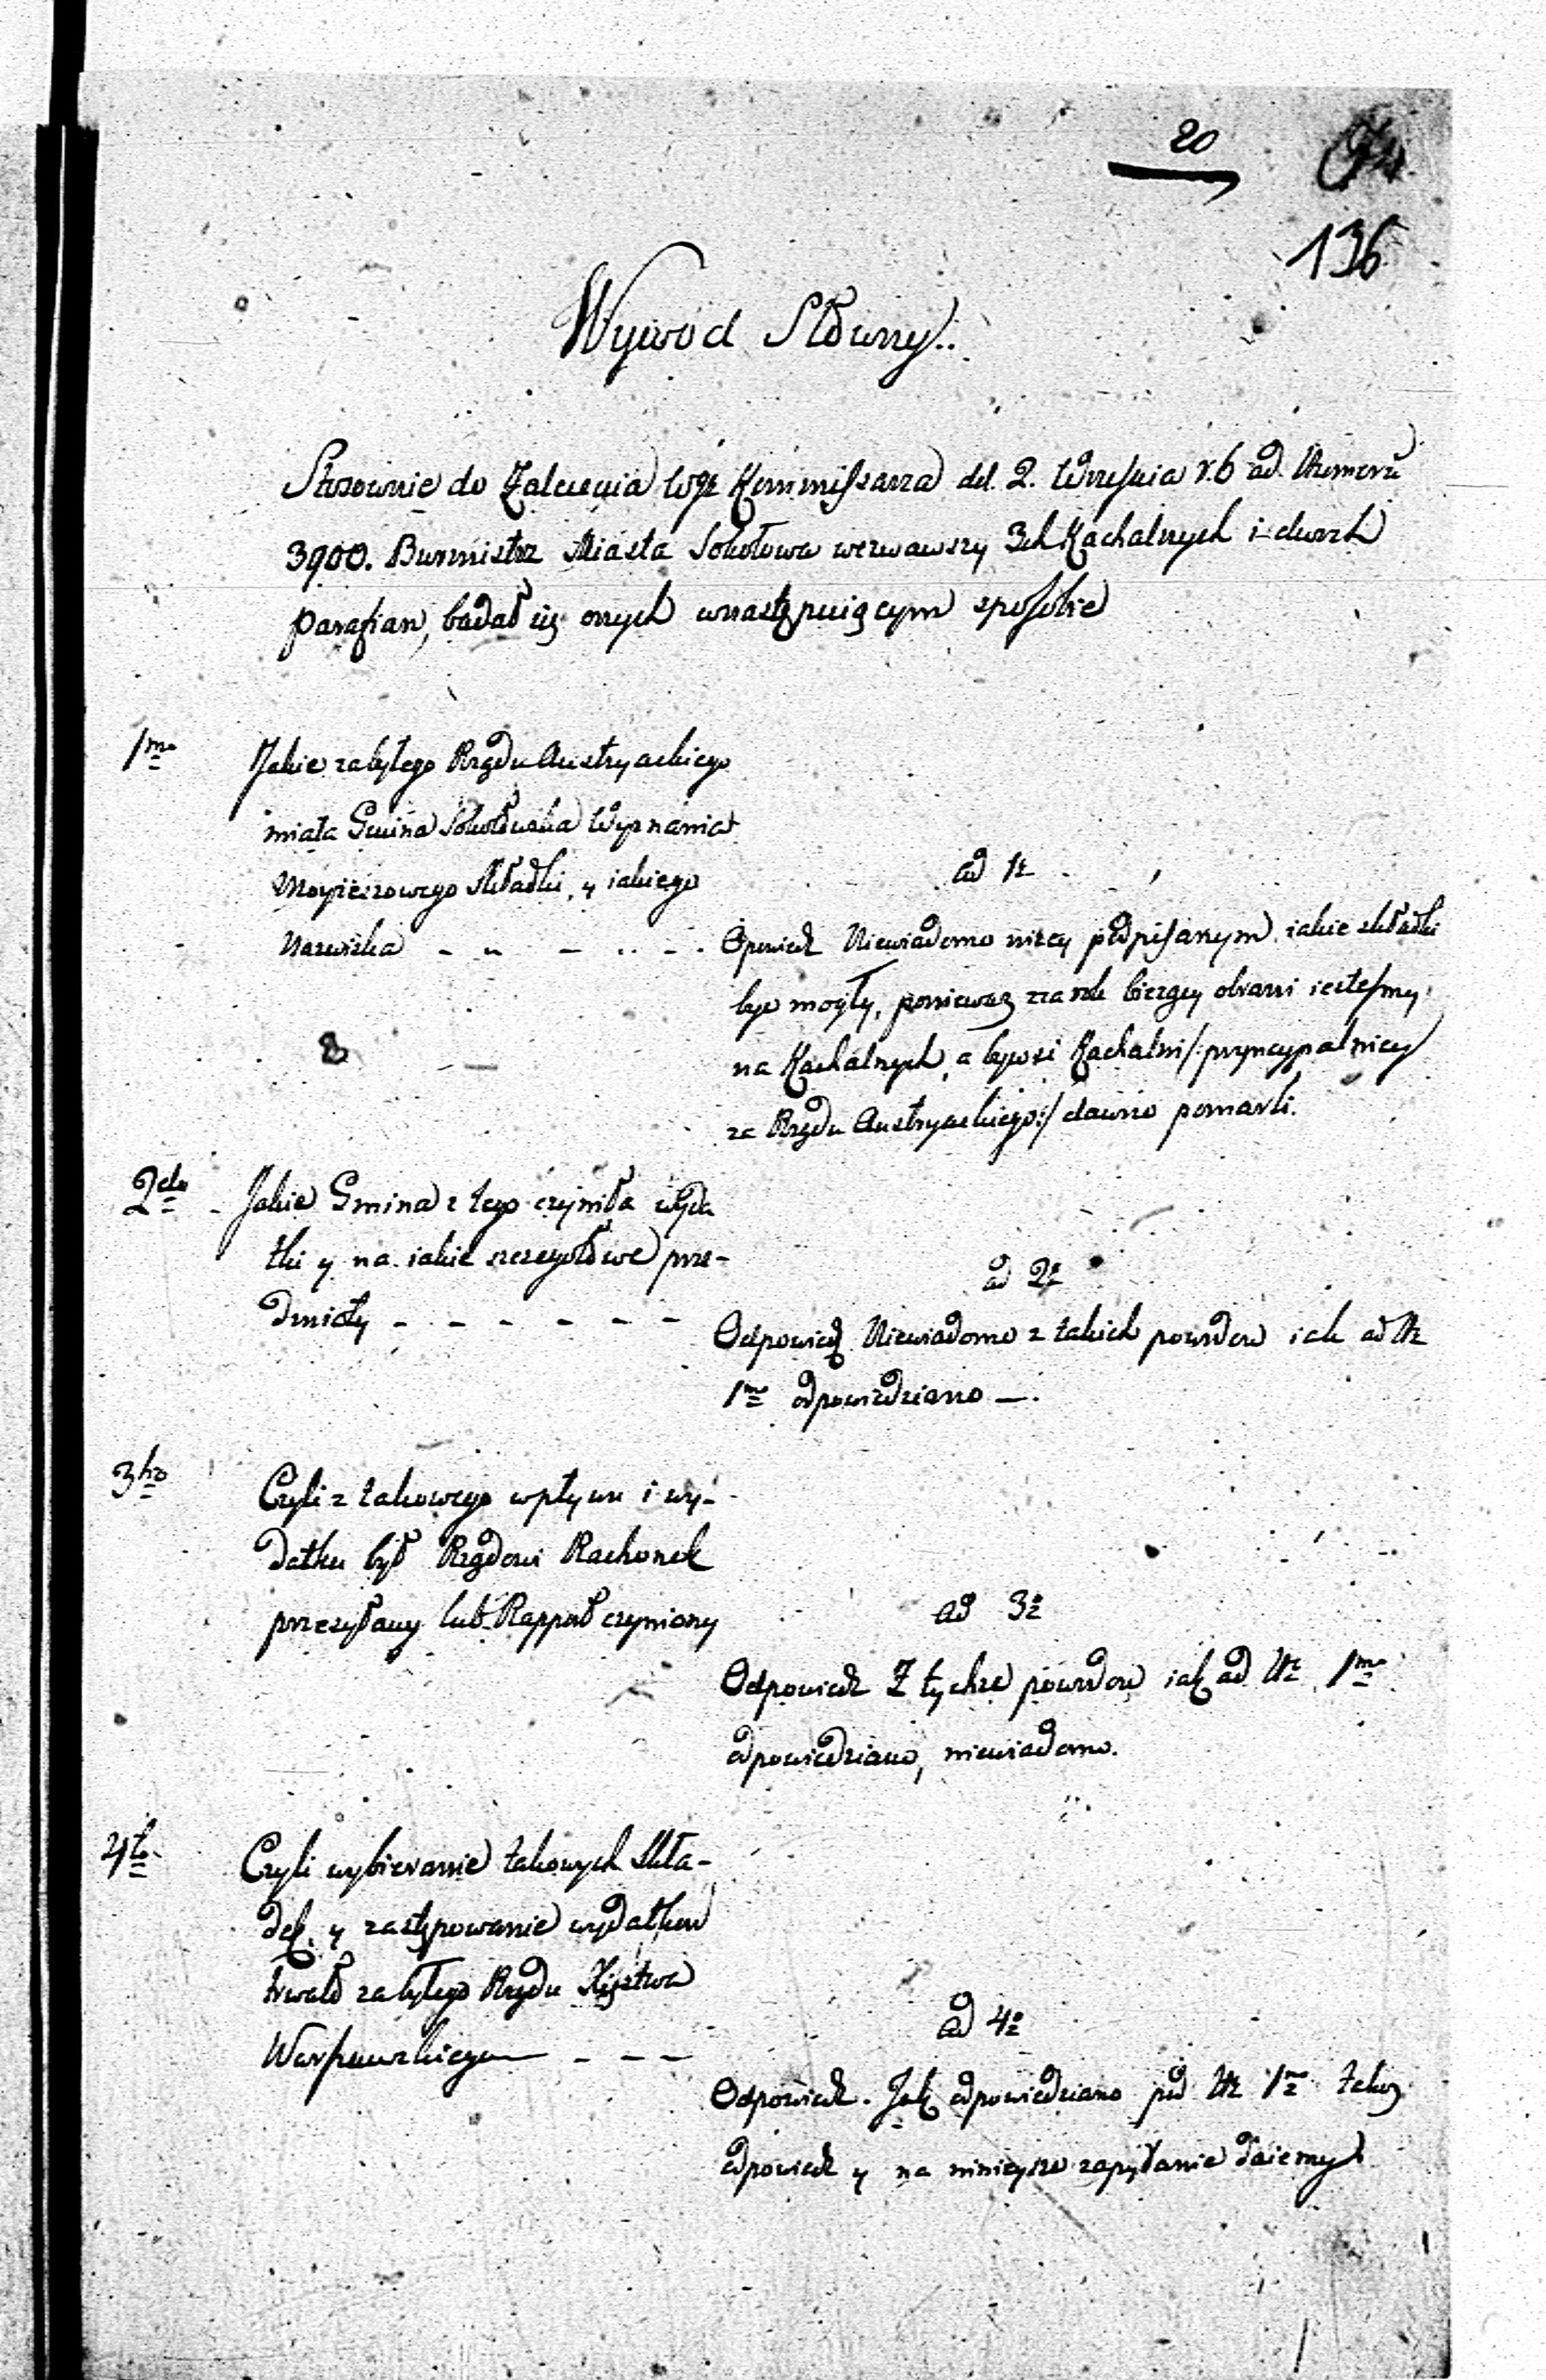 20
136
Wywód Słowny..
Stosownie do Zalecenia Wgo Kommissarza dd. 2. Września r. b ad Numeru
3900. Burmistrz Miasta Sokołowa wezwawszy 3ch Kachalnych i dwoch
Parafian, badał się onych wnastępuiącym sposobie
1mo Jakie zabyłego Rządu Austryackiego
miała Gmina Sokołowska Wyznania
Moyżeszowego składki, y iakiego
Nazwiska - - - - -
ad 1e
Opowiedz Niewiadomo niżey podpisanym iakie składki
być mogły, ponieważ zza rok bieżący obrani iestesmy
na Kachalnych, a bywsi Kachalni /: pryncypalnicy
za Rządu Austryackiego :/ dawno pomarli.
2do - Jakie Gmina z tego czyniła wyda
tki y na iakie szczegołowe prze-
dmioty - - - - - -
ad 2o
Odpowiedź Niewiadomo z takich powodow iak ad Nr
1mo odpowiedziano —.
3tio Czyli z takowego wpływu i wy-
datku był Rządowi Rachonek
przesyłany lub Rapport czyniony
ad 3o
Odpowiedz Z tychże powodow iak ad Nr 1mo
odpowiedziano, niewiadomo.
4to Czyli wybieranie takowych Skła-
dek, y zastępowanie wydatkow
trwało zabyłego Rządu Xięztwa
Warszawskiego — - - -
ad 4o
Odpowiedz. Jak odpowiedziano pod Nr 1mo takąż
odpowiedz y na ninieysze zapytanie daiemy